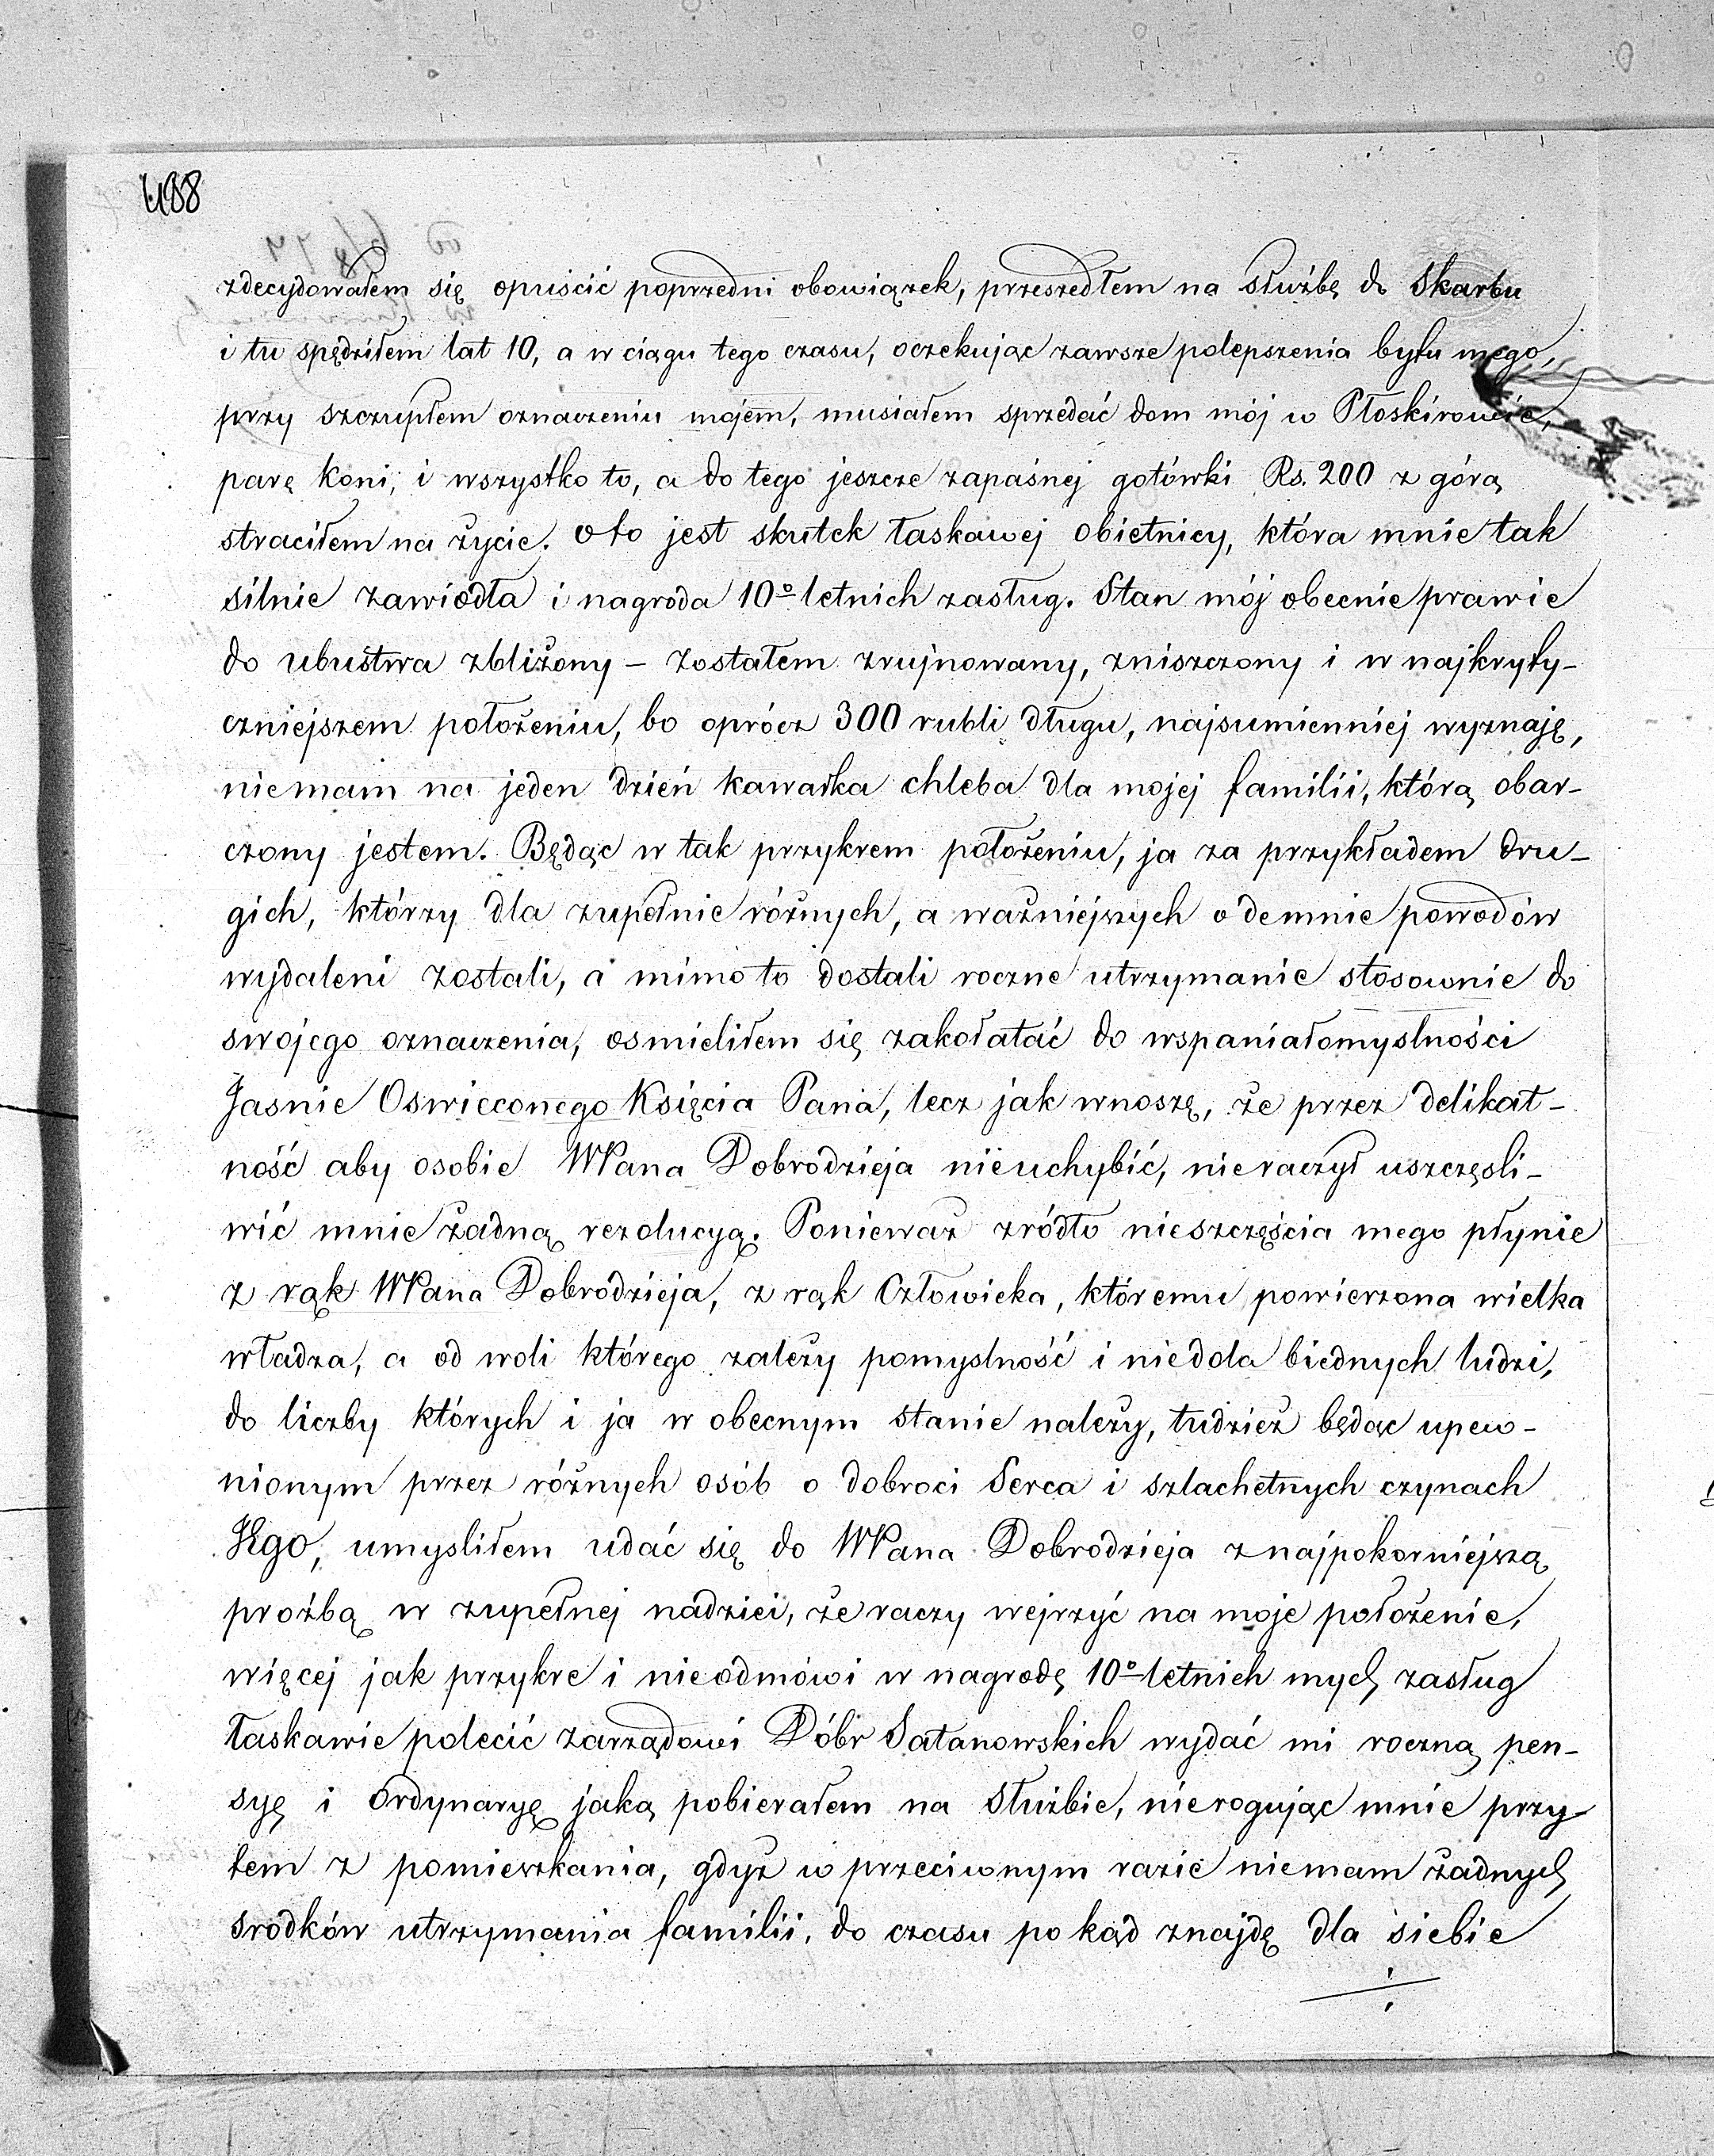 488
zdecydowałem się opuścić poprzedni obowiązek, przeszedłem na służbę do Skarbu
i tu spędziłem lat 10, a w ciągu tego czasu, oczekując zawsze polepszenia bytu mego,
przy szczupłem oznaczeniu mojem, musiałem sprzedać dom mój w Płoskirowie,
parę koni, i wszystko to, a do tego jeszcze zapaśnej gotówki Rs. 200 z górą
straciłem na życie. Oto jest skutek łaskawej obietnicy, która mnie tak
silnie zawiodła i nagroda 10º letnich zasług. Stan mój obecnie prawie
do ubustwa zbliżony – zostałem zrujnowany, zniszczony i w najkryty-
czniejszem położeniu, bo oprócz 300 rubli długu, najsumienniej wyznaję,
niemam na jeden dzień kawałka chleba dla mojej familii, którą obar-
czony jestem. Będąc w tak przykrem położeniu, ja za przykładem dru-
gich, którzy dla zupełnie różnych, a ważniejszych odemnie powodów
wydaleni zostali, a mimo to dostali roczne utrzymanie stosownie do
swojego oznaczenia, osmieliłem się zakołatać do wspaniałomyslności
Jasnie Oswieconego Księcia Pana, lecz jak wnoszę, że przez delikat-
ność aby osobie WPana Dobrodzieja nieuchybić, nieraczył uszczęsli-
wić mnie żadną rezolucyą. Ponieważ zródło nieszczęścia mego płynie
z rąk WPana Dobrodzieja, z rąk Człowieka, któremu powierzona wielka
władza, a od woli którego zależy pomyslność i niedola biednych ludzi,
do liczby których i ja w obecnym stanie należy, tudzież będąc upew-
nionym przez różnych osób o dobroci Serca i szlachetnych czynach
JEgo, umysliłem udać się do WPana Dobrodzieja z najpokorniejszą
proźbą w zupełnej nadziei, że raczy wejrzyć na moje położenie,
więcej jak przykre i nieodmówi w nagrodę 10º letnich mych zasług
łaskawie polecić zarządowi Dóbr Satanowskich wydać mi roczną pen-
syę i Ordynaryę jaką pobierałem na Służbie, nierogując mnie przy-
tem z pomieszkania, gdyż w przeciwnym razie niemam żadnych
srodków utrzymania familii, do czasu pokąd znajdę dla siebie